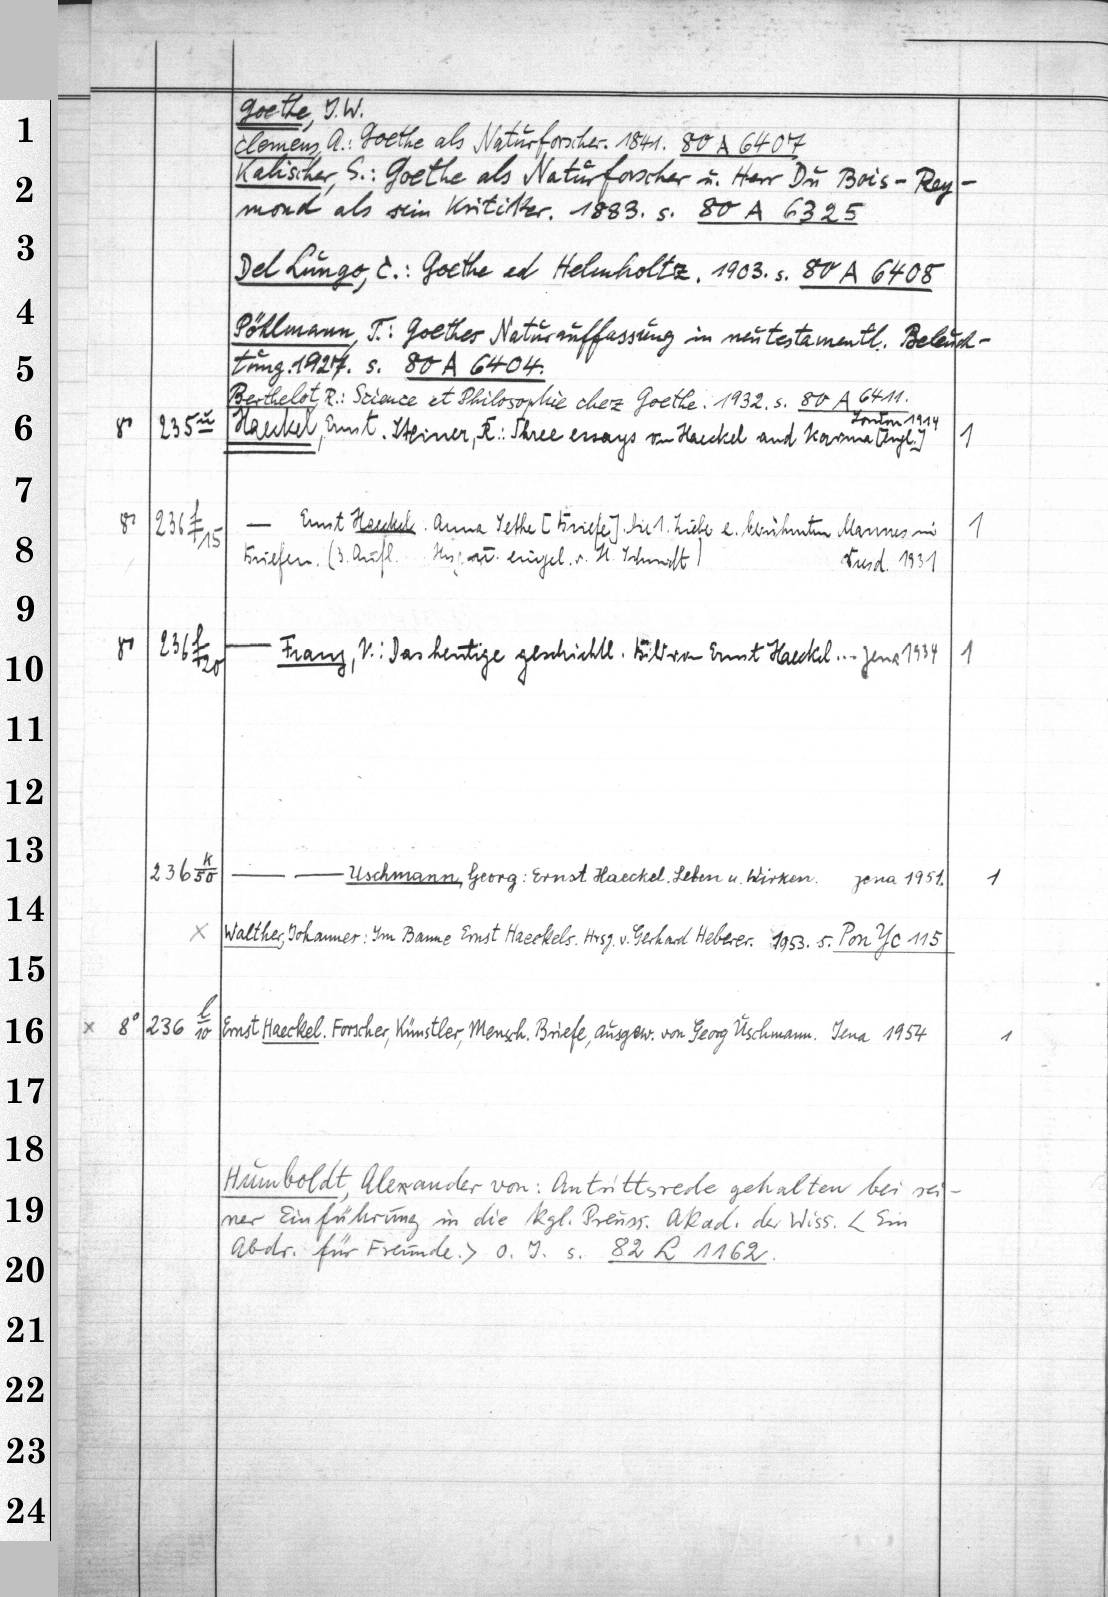 Goethe, J. W.
1 Clemens, A.: Goethe als Naturforscher. 1841. 80 A 6407
Kalischer, S.: Goethe als Naturforscher u. Herr Du Bois-Rey-
2 mond als sein Kritiker. 1883. s. 80 A 6325
3 Del Lungo, C.: Goethe ed Helmholtz. 1903. s. 80 A 6408
4 Pöhlmann, T.: Goethes Naturauffassung in neutestamentl. Beleuch-
5 tung. 1927. s. 80 A 6404.
Berthelot, R.: Science et Philosophie chez Goethe. 1932. s. 80 A 6411.
London 1914
6 8° 235 u Haeckel, Ernst. Steiner, R.: Three essays on Haeckel and Karma [Engl.] 1
7
8° 236 f/15 — Ernst Haeckel. Anna Sethe [Briefe]. Die 1. Liebe e. berühmten Mannes in 1
8 Briefen. (3. Aufl. eingel. v. H. Schmidt) Dresd. 1931
9
10 8° 236 f/20 — Franz, V.: Das heutige geschichtl. Bild von Ernst Haeckel ... Jena 1934 1
11
12
13
236 k/50 — — Uschmann, Georg: Ernst Haeckel. Leben u. Wirken. Jena 1951. 1
14
x Walther, Johannes: Im Banne Ernst Haeckels. Hrsg. v. Gerhard Heberer. 1953. s. Pon Yc 115
15
16 x 8° 236 l/10 Ernst Haeckel. Forscher, Künstler, Mensch. Briefe, ausgew. von Georg Uschmann. Jena 1954 1
17
18
Humboldt, Alexander von: Antrittsrede gehalten bei sei-
19 ner Einführung in die kgl. Preuss. Akad. der Wiss. < Ein
20 Abdr. für Freunde.> o. J. s. 82 L 1162.
21
22
23
24